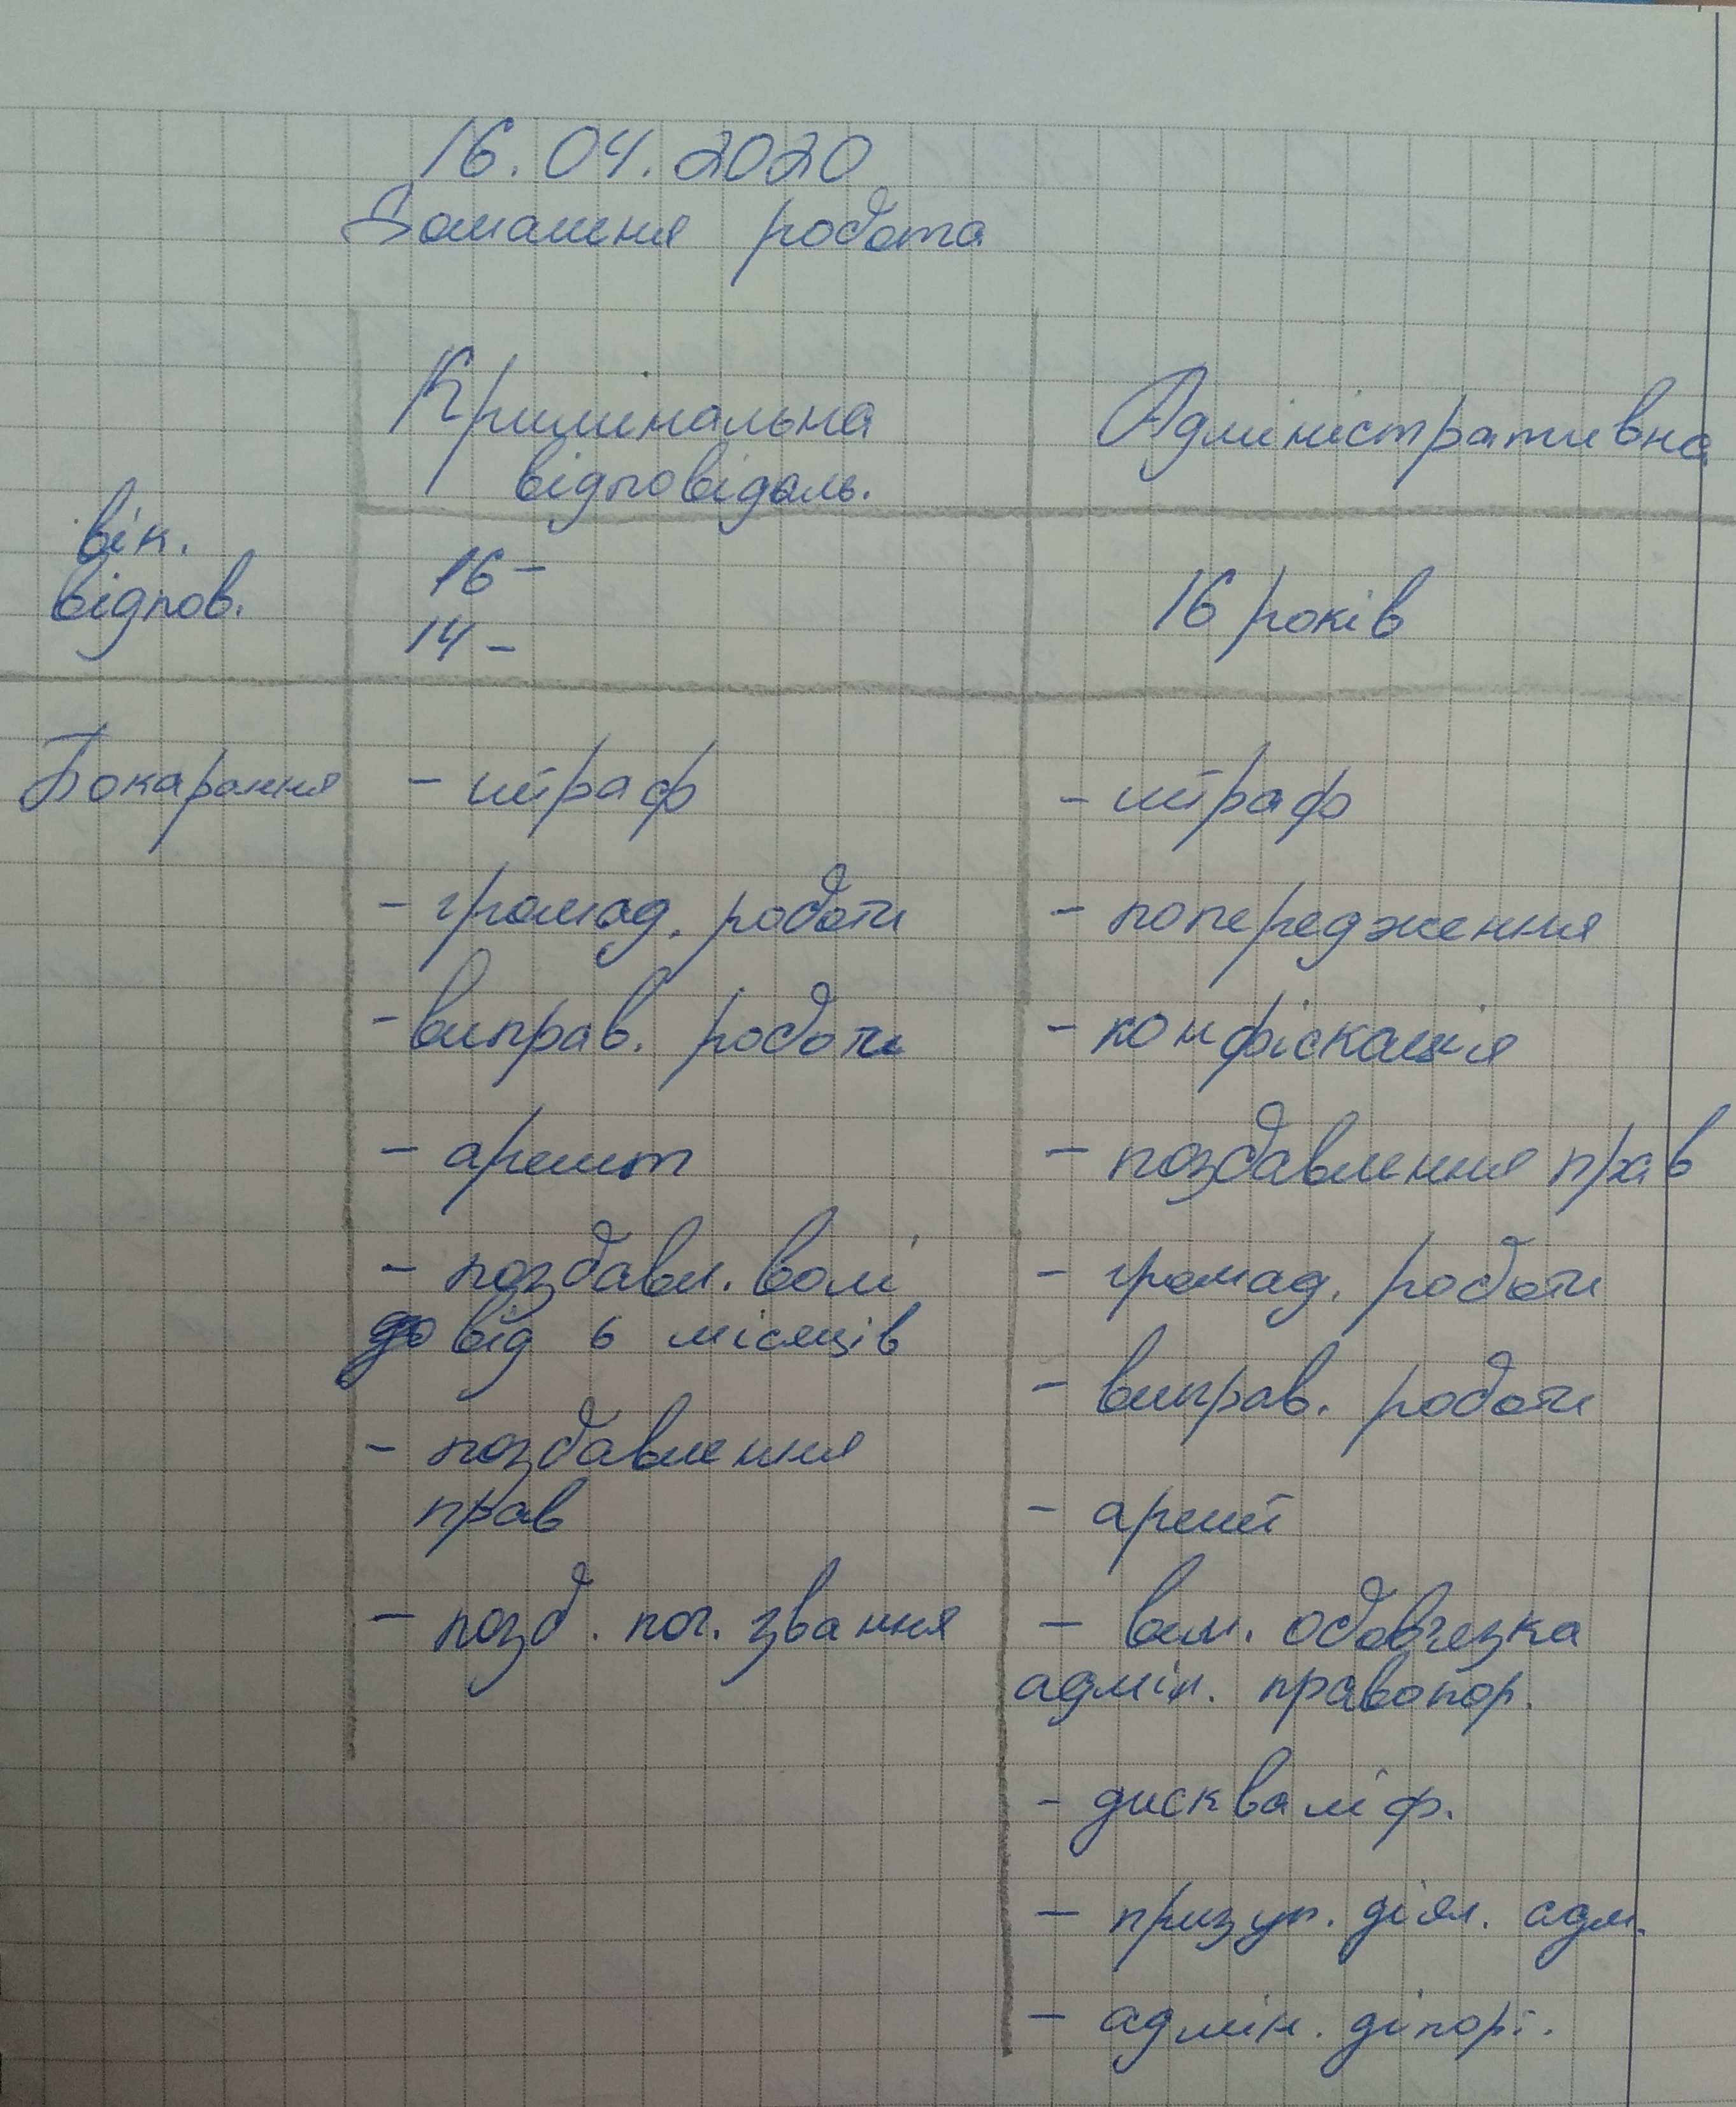 16.04.2020
Домашня робота
Кримінальна
відповідаль.
Адміністративна
вік.
відпов.
16 -
14 -
16 років
Покарання
- штраф
- штраф
- громад. роботи
- попередження
- виправ. роботи
- конфіскація
- арешт
- поздавлення прав
- поздавл. волі
від 6 місяців
- громад. роботи
- виправ. роботи
- поздавлення
прав
- арешт
- позб. поч. звання
- вик. обов'язка
адмін. правопор.
- дискваліф.
- призуп. діял. адм.
- адмін. діпорт.